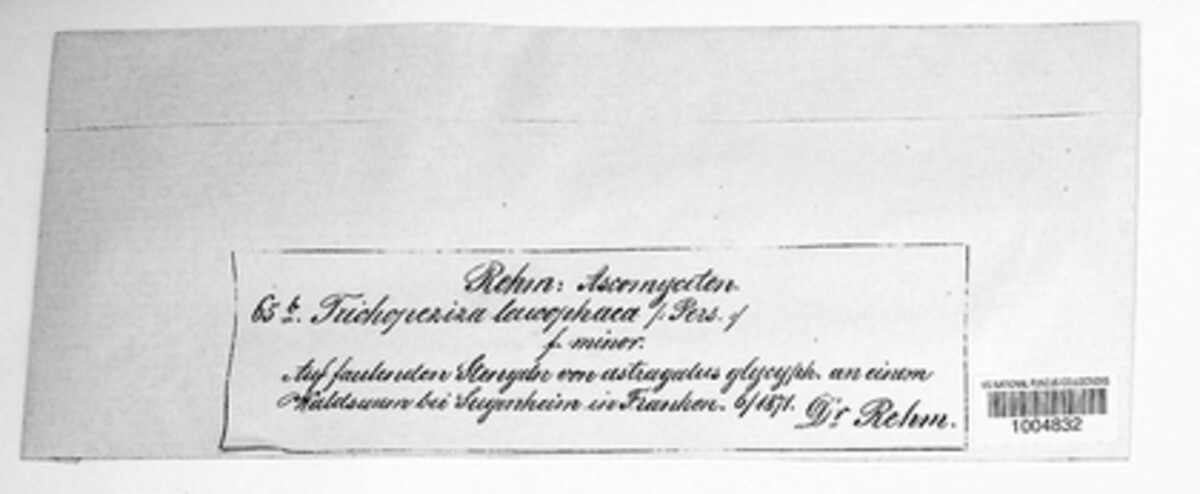 Rehm: Ascomyceten.
65 b. Trichopeziza leucophaea (Pers.)
f. minor.
Auf faulenden Stengeln von astragalus glycyph. an einem
Waldsaum bei Sugenheim in Franken. 6/1871.
Dr Rehm.
US NATIONAL FUNGUS COLLECTIONS
1004832